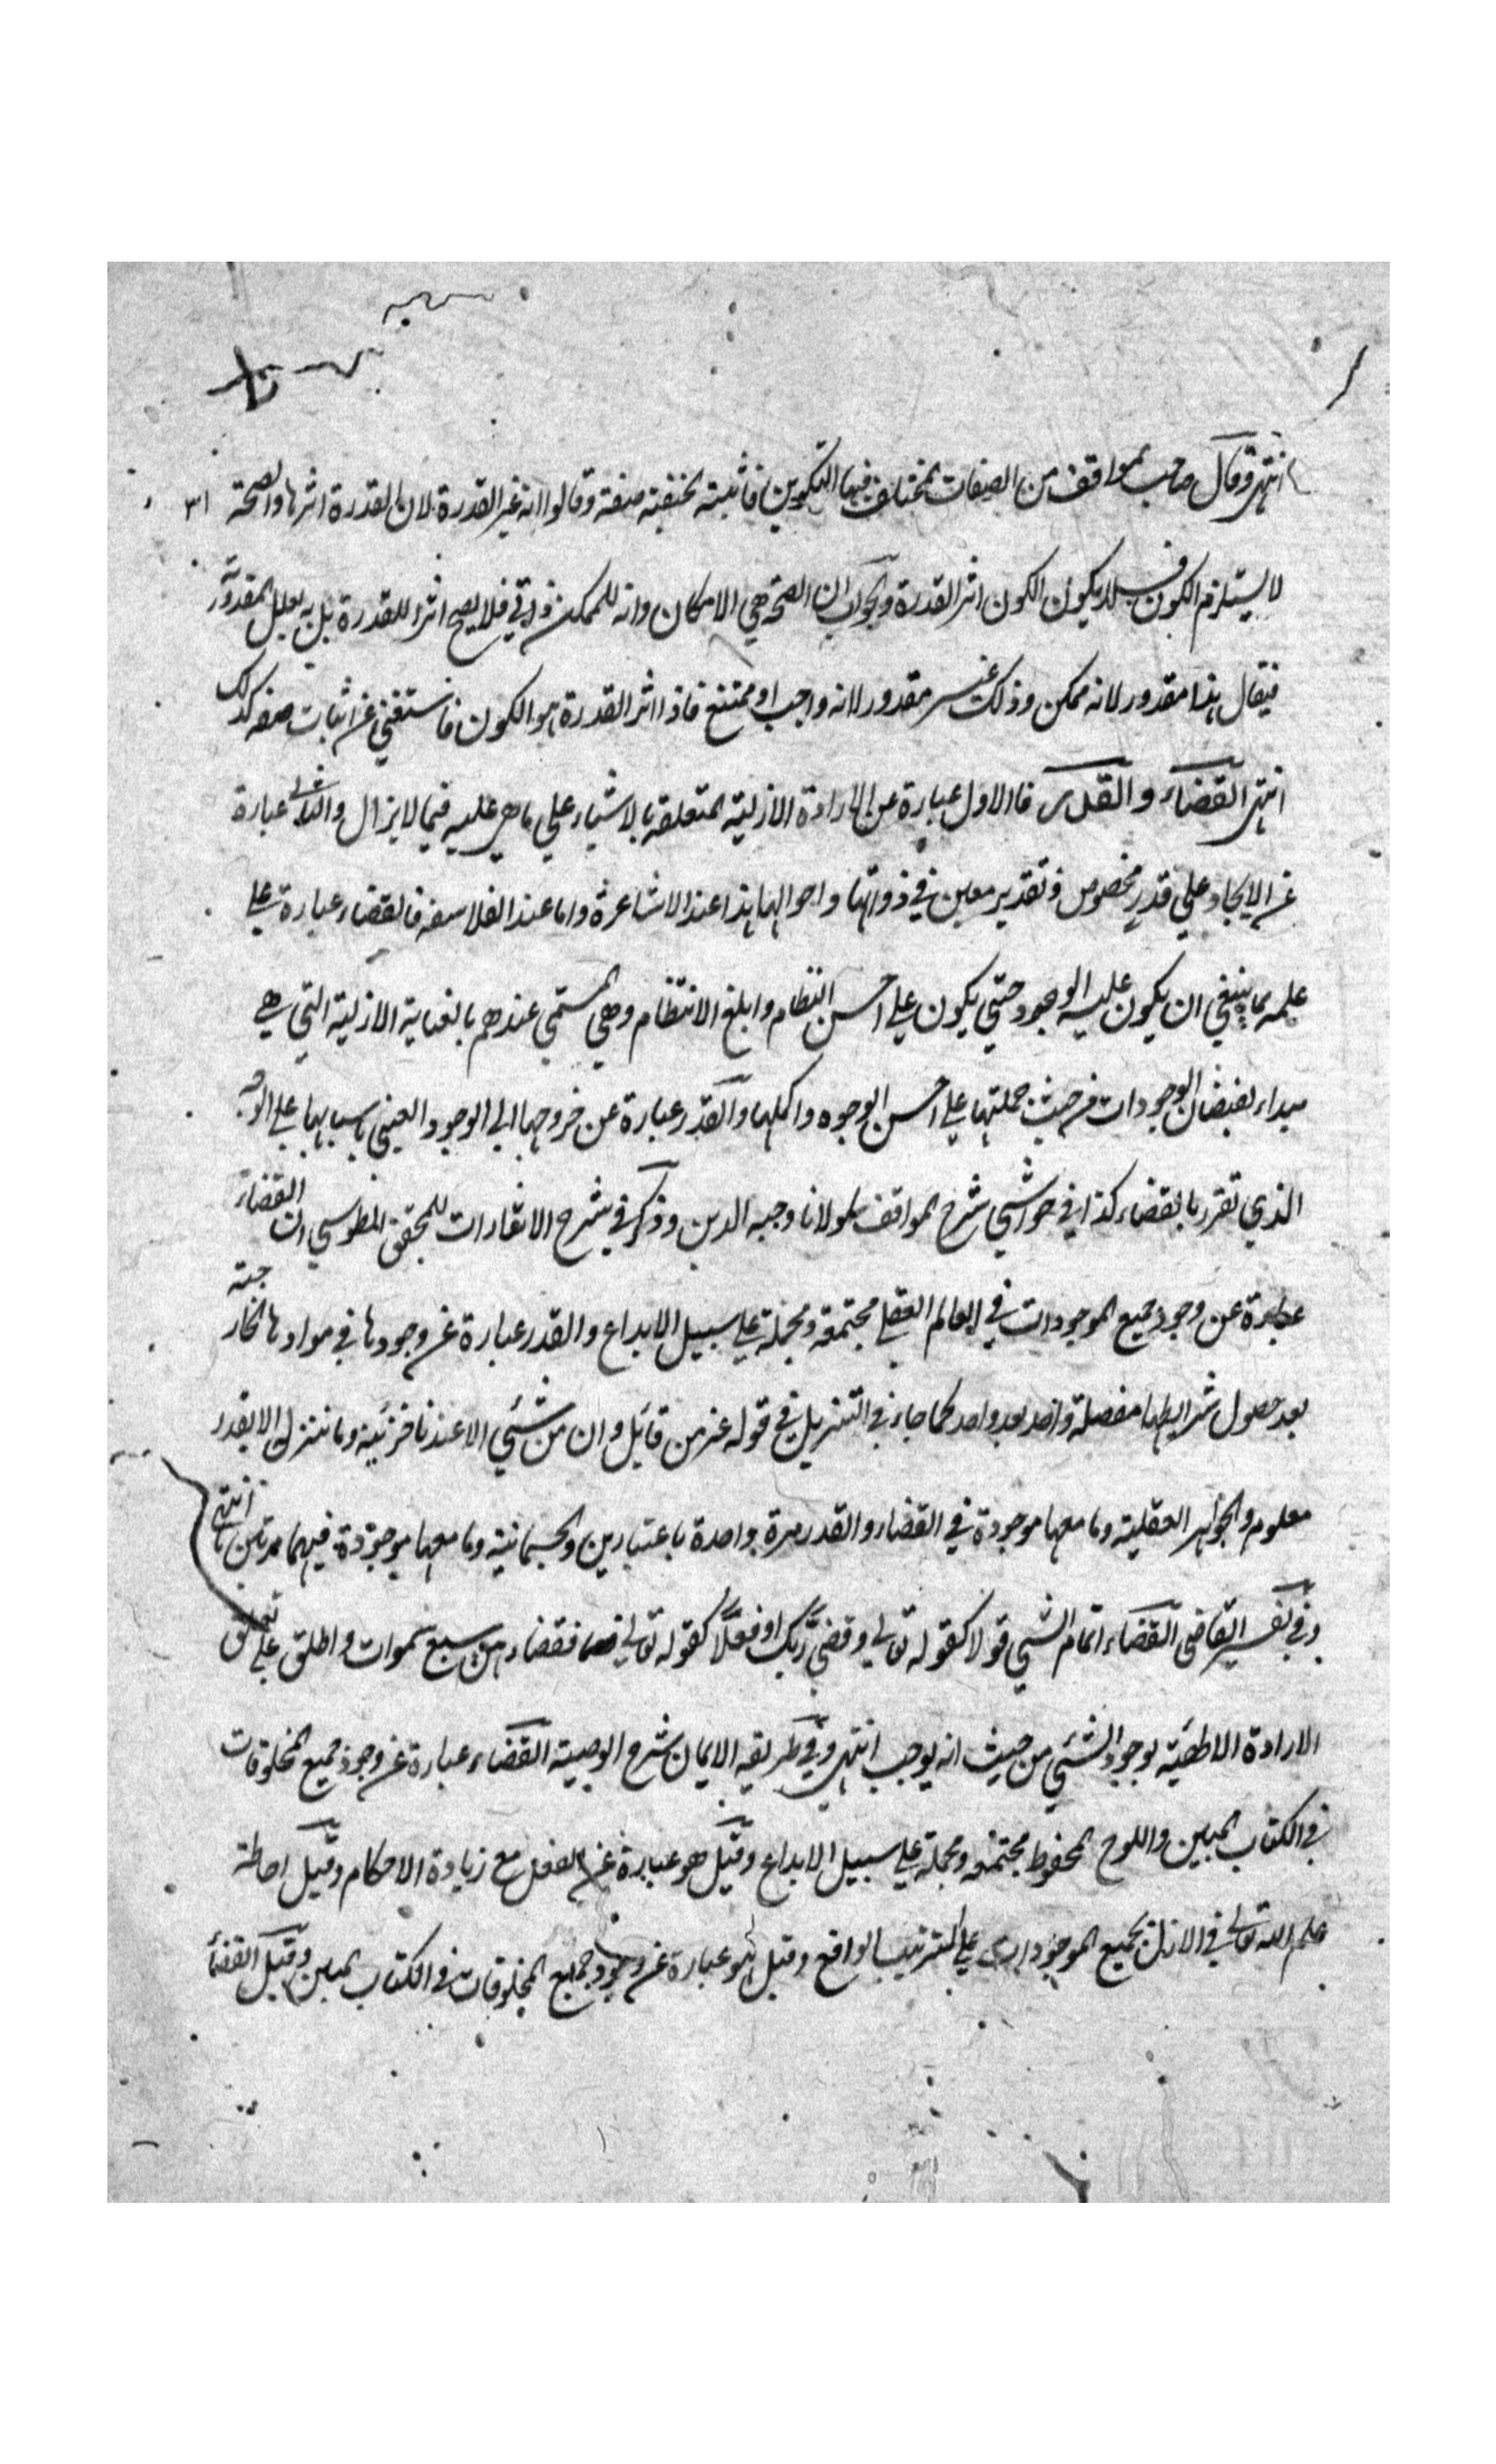 انتهى وقال صاحب المواقف من الصفات المختلف فيها التكوين فاثبته الحنفية صفة وقالوا انه غير القدرة لان القدرة اثرها الصحة والصحة ٣١
لا يستلزم الكون فلا يكون الكون اثر القدرة والجواب ان الصحة هي الامكان وانه للممكن ذاتي فلا يصح اثرا للقدرة بل به يعلل المقدورية
فيقال هذا مقدور لانه ممكن وذلك غير مقدور لانه واجب او ممتنع فاذا اثر القدرة هو الكون فاستغنى عن اثبات صفة كذلك
انتهى القضاء والقدر فالاول عبارة عن الارادة الازلية المتعلقة بالاشياء على ما هي عليه فيما لا يزال والثاني عبارة
عن الايجاد على قدر مخصوص وتقدير معين في ذواتها واحوالها هذا عند الاشاعرة واما عند الفلاسفه فالقضاء عبارة على
علمه بما ينبغي ان يكون عليه الوجود حتى يكون على احسن النظام وابلغ الانتظام وهي المسمى عندهم بالعناية الازلية التي هي
مبداء لفيضان الوجودات من حيث جملتها على احسن الوجوه واكملها والقدر عبارة عن خروجها الى الوجود العيني باسبابها على الوجه
الذي تقرر بالقضاء كذا في حواشي شرح المواقف لمولانا وجيه الدين وذكر في شرح الاشارات للمحقق الطوسي ان القضاء
عبارة عن وجود جميع الموجودات في العالم العقلي مجتمعة ومجملة على سبيل الابداع والقدر عبارة عن وجودها في موادها الخارجية
بعد حصول شرايطها مفصلة واحد بعد واحد كما جاء في التنزيل في قوله عز من قائل وان من شئي الا عندنا خزئنه وما ننزله الا بقدر
معلوم والجواهر العقلية وما معها موجودة في القضاء والقدر مرة واحدة باعتبارين والجسمانية وما معها موجودة فيهما مرتين انتهى
وفي تفسير القاضى القضاء اتمام الشئ قولا كقوله تعالى وقضى ربك او فعلا كقوله تعالى فقضاهن سبع سموات واطلق على تعلق
الارادة الالهية بوجود الشئي من حيث انه يوجب انتهى وفي طريقه الايمان شرح الوصية القضاء عبارة عن وجود جميع المخلوقات
في الكتاب المبين واللوح المحفوظ مجتمعه ومجملة على سبيل الابداع وقيل هو عبارة عن الفعل مع زيادة الاحكام وقيل احاطة
علم الله تعالى في الازل بجميع الموجودات على الترتيب الواقع وقيل هو عبارة عن وجود جميع المخلوقات في الكتاب المبين وقيل القضاء